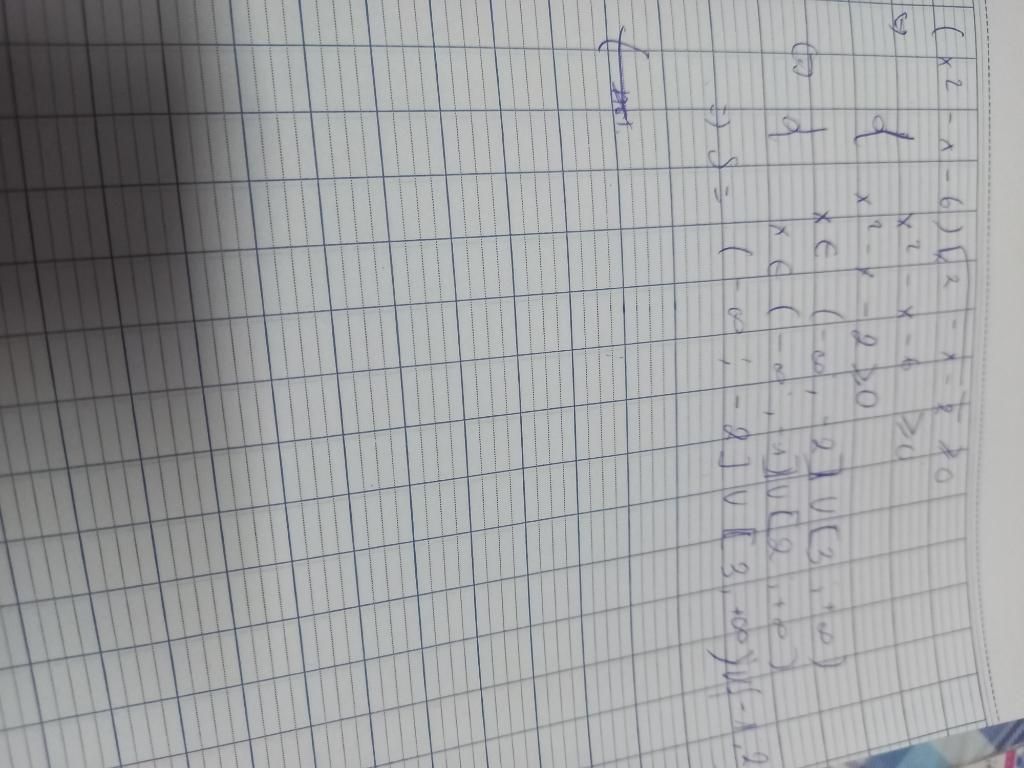 (x² - x - 6)√x² - x - 2 ≥ 0
⇔ { x² - x - 6 ≥ 0
x² - x - 2 ≥ 0
⇔ { x ∈ (-∞, -2] ∪ [3, +∞)
x ∈ (-∞, -1] ∪ [2, +∞)
=> S = (-∞; -2] ∪ [3, +∞) ∪ {-1, 2